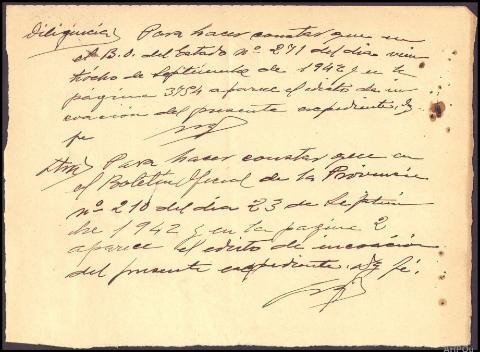 Diligencia) Para hacer constar que en
el B. O. del Estado nº 271 del dia vein
tiocho de Septiembre de 1942 y en la
página 3754 aparece el edicto de in
coación del presente expediente. Doy
fe
Otra) Para hacer constar que en
el Boletin Oficial de la Provincia
nº 210 del dia 23 de Septiem
bre 1942 y en la pagina 2
aparece el edicto de incoación
del presente expediente. Doy fé.
AHPOu